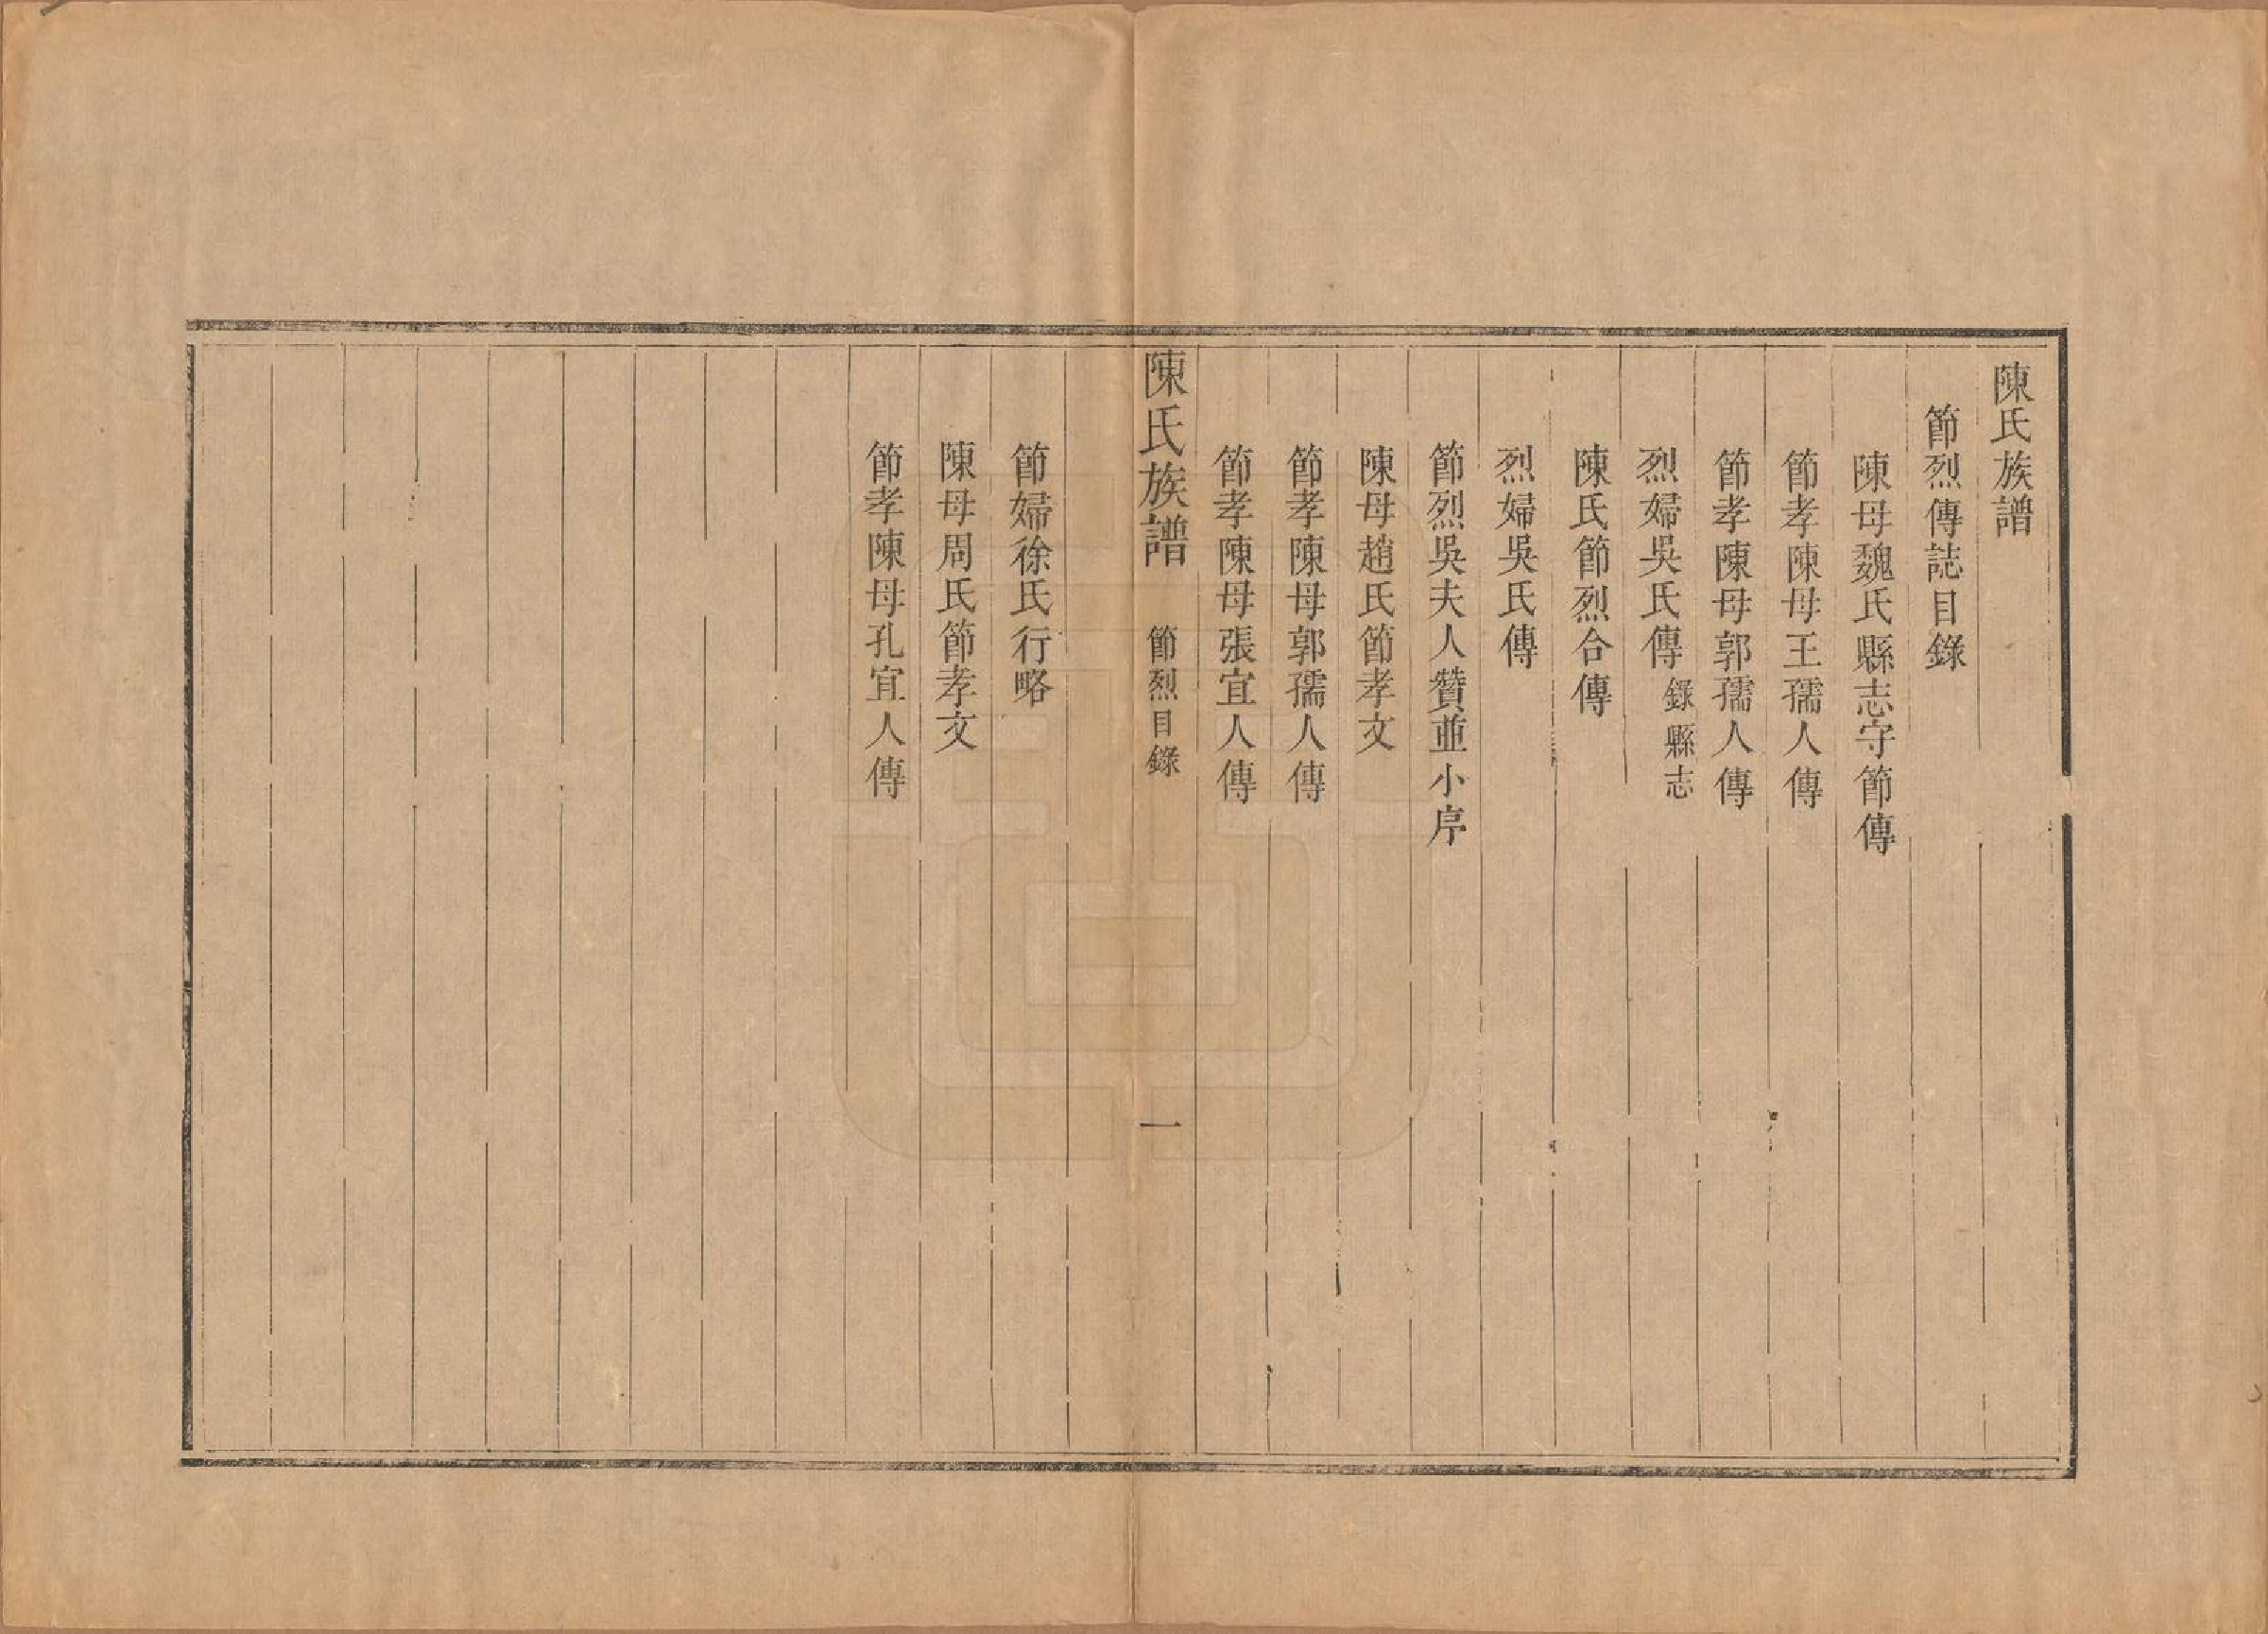 陳氏族譜
節烈傳誌目錄
陳母魏氏縣志守節傳
節孝陳母王孺人傳
節孝陳母郭孺人傳
烈婦吳氏傳 錄縣志
陳氏節烈合傳
烈婦吳氏傳
節烈吳夫人贊並小序
陳母趙氏節孝文
節孝陳母郭孺人傳
節孝陳母張宜人傳
陳氏族譜 節烈目錄 一
節婦徐氏行略
陳母周氏節孝文
節孝陳母孔宜人傳